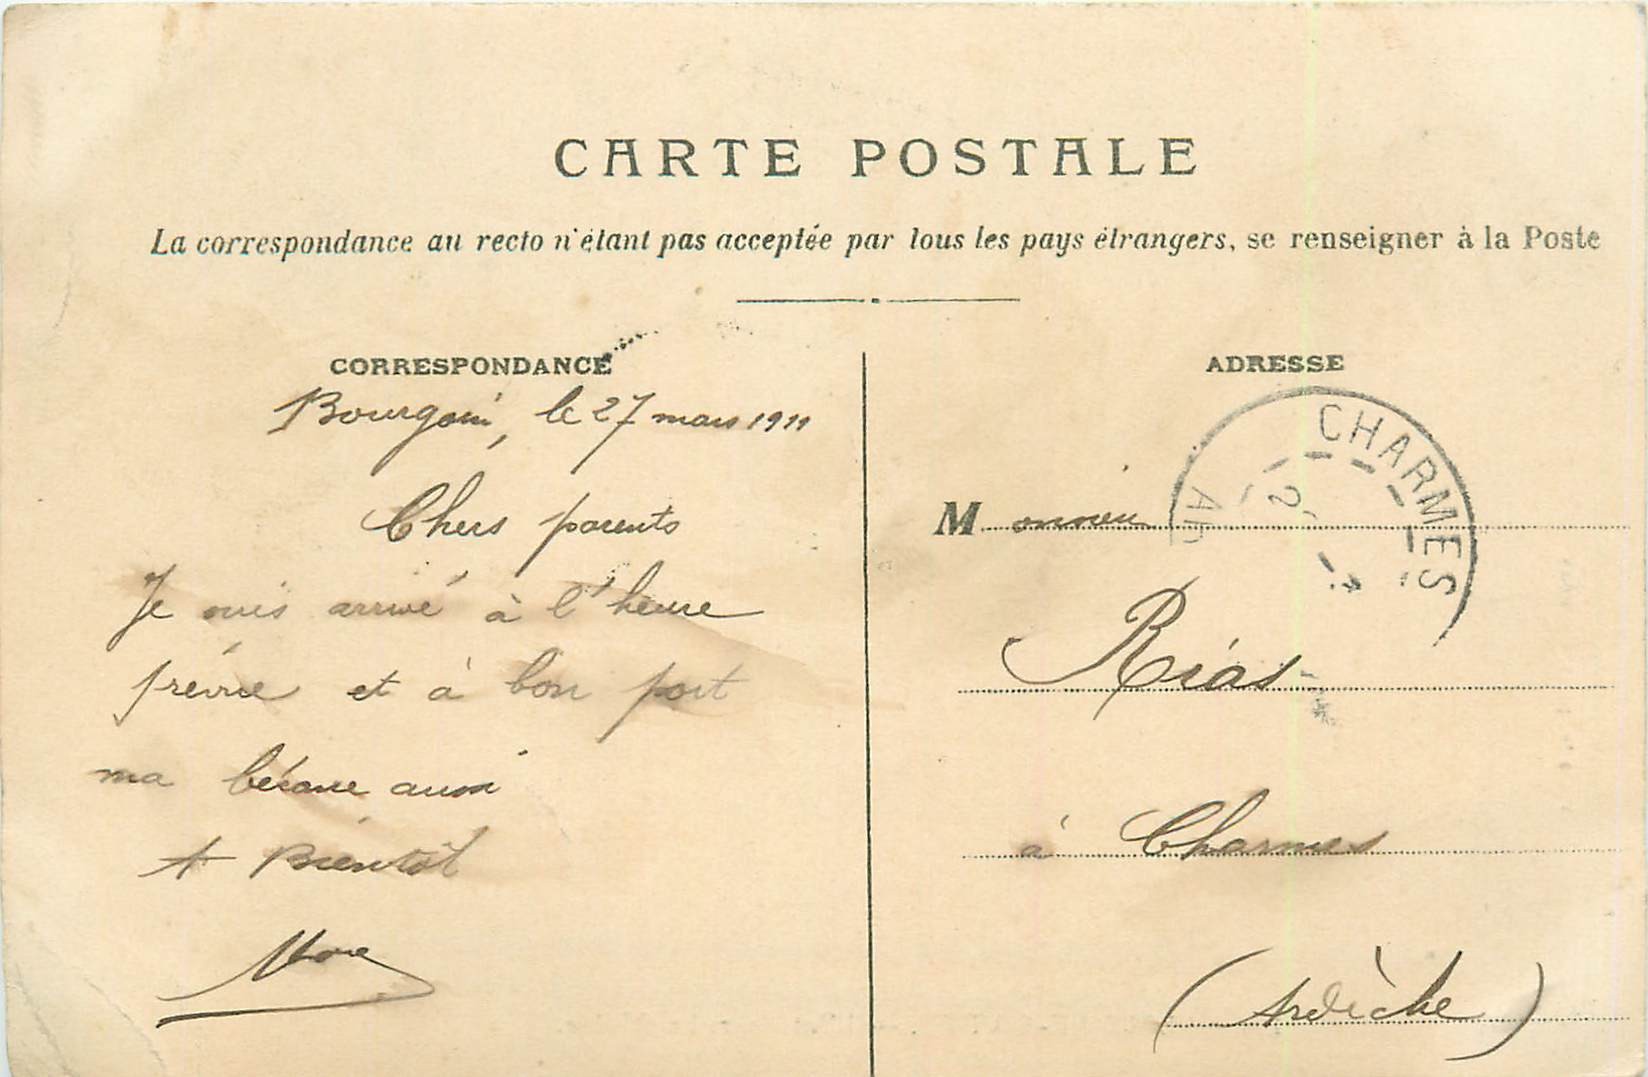 CARTE POSTALE
La correspondance au recto n'étant pas acceptée par tous les pays étrangers, se renseigner à la Poste
CORRESPONDANCE
Bourgoin, le 27 mars 1911
Chers parents
Je suis arrivé à l'heure
prévue et à bon port
ma bécane aussi
A Bientôt
ADRESSE
CHARMES
Monsieur
Riás
à Charmes
(Ardèche)